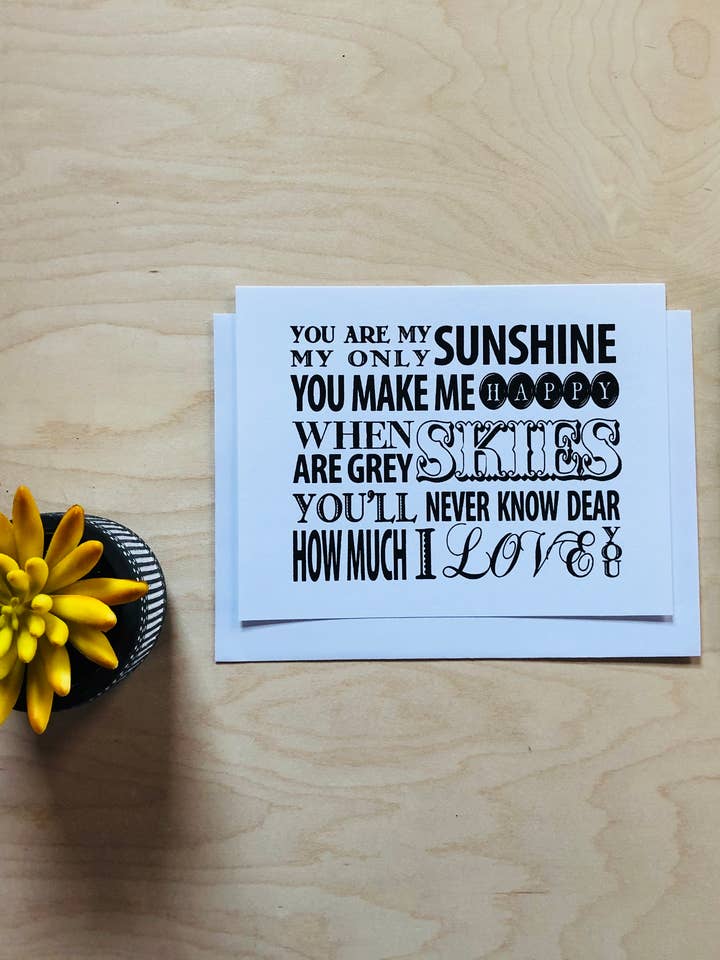 YOU ARE MY
MY ONLY SUNSHINE
YOU MAKE ME HAPPY
WHEN
ARE GREY SKIES
YOU'LL NEVER KNOW DEAR
HOW MUCH I LOVE YOU